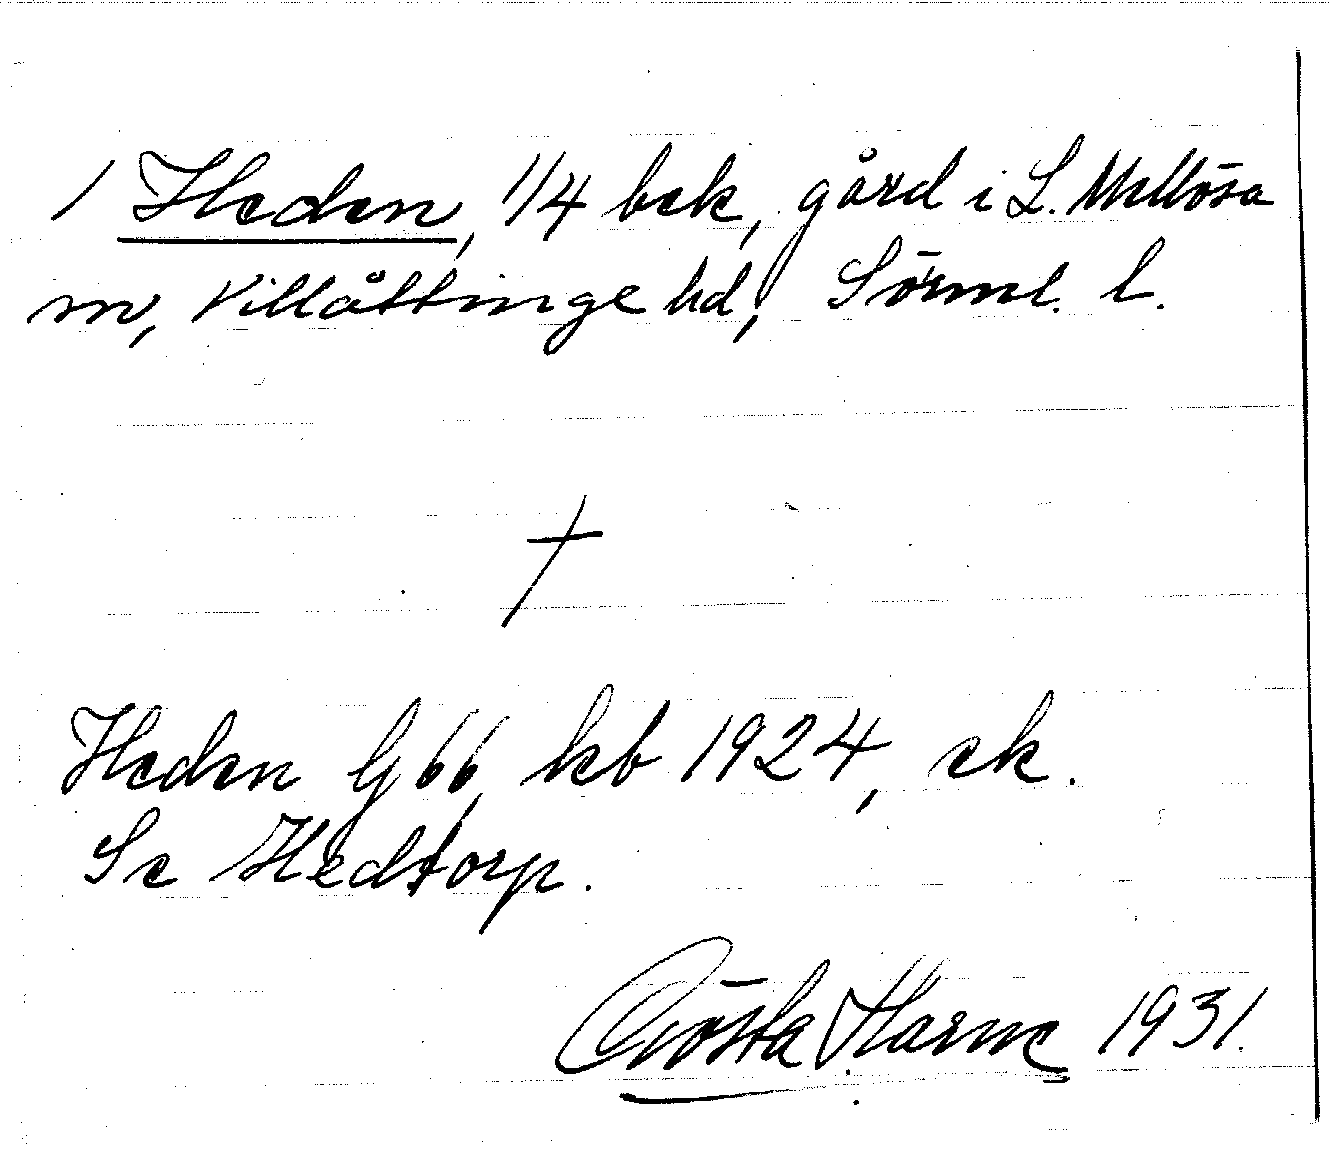 1 Heden, 1/4 bek, gård i L. Mellösa
sn, Villåttinge hd, Sörml. l.
†
Heden G 66, kb 1924, ek.
Se Hedtorp.
Gösta Harne 1931.